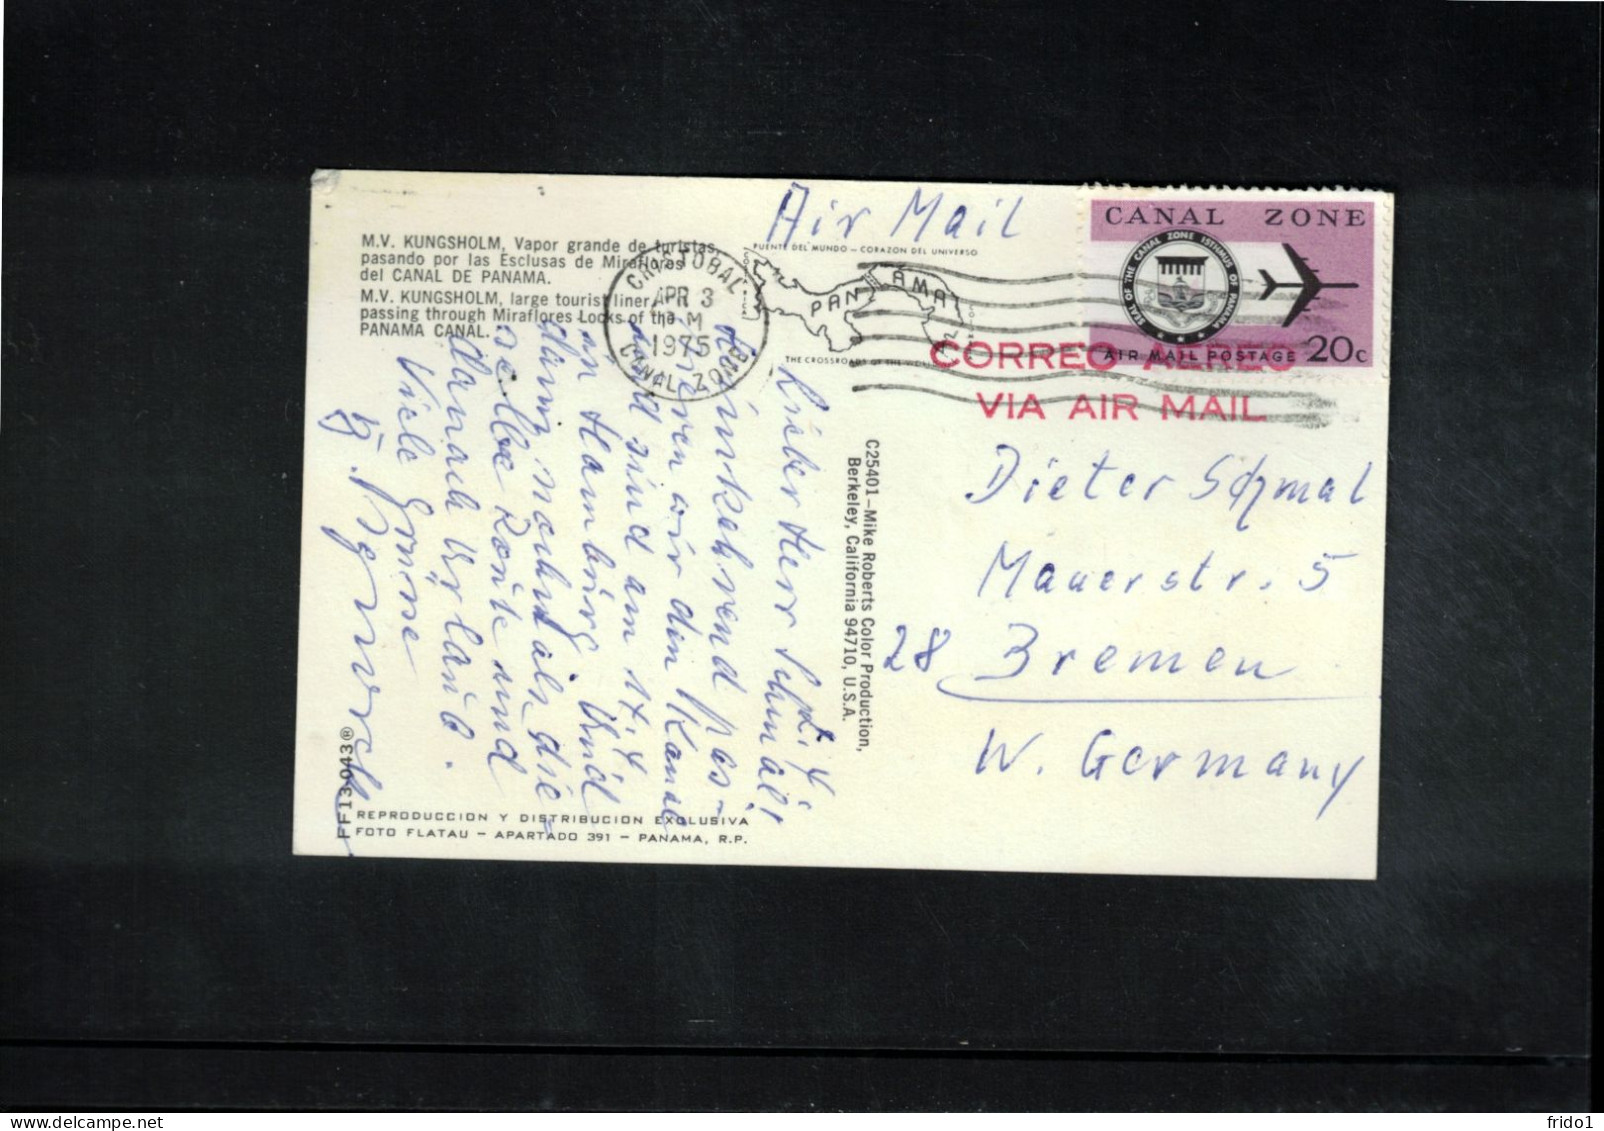 Air Mail
M.V. KUNGSHOLM, Vapor grande de turistas,
pasando por las Esclusas de Miraflores
del CANAL DE PANAMA.
M.V. KUNGSHOLM, large tourist liner
passing through Miraflores Locks of the
PANAMA CANAL.
CRISTOBAL
APR 3
PM
1975
CANAL ZONE
PUENTE DEL MUNDO – CORAZON DEL UNIVERSO
PANAMA
THE CROSSROADS OF THE WORLD
CANAL ZONE
SEAL OF THE CANAL ZONE ISTHMUS OF PANAMA
AIR MAIL POSTAGE 20c
CORREO AEREO
VIA AIR MAIL
Lieber Herr Schmal!
wir den Kanal
und sind am 17.4
in Hamburg. Und
dann nochmals die-
selbe Route und
danach Urlaub.
Viele Grüße
C25401–Mike Roberts Color Production,
Berkeley, California 94710, U.S.A.
Dieter Schmal
Mauerstr. 5
28 Bremen
W. Germany
FF13043®
REPRODUCCION Y DISTRIBUCION EXCLUSIVA
FOTO FLATAU – APARTADO 391 – PANAMA, R.P.
frido1